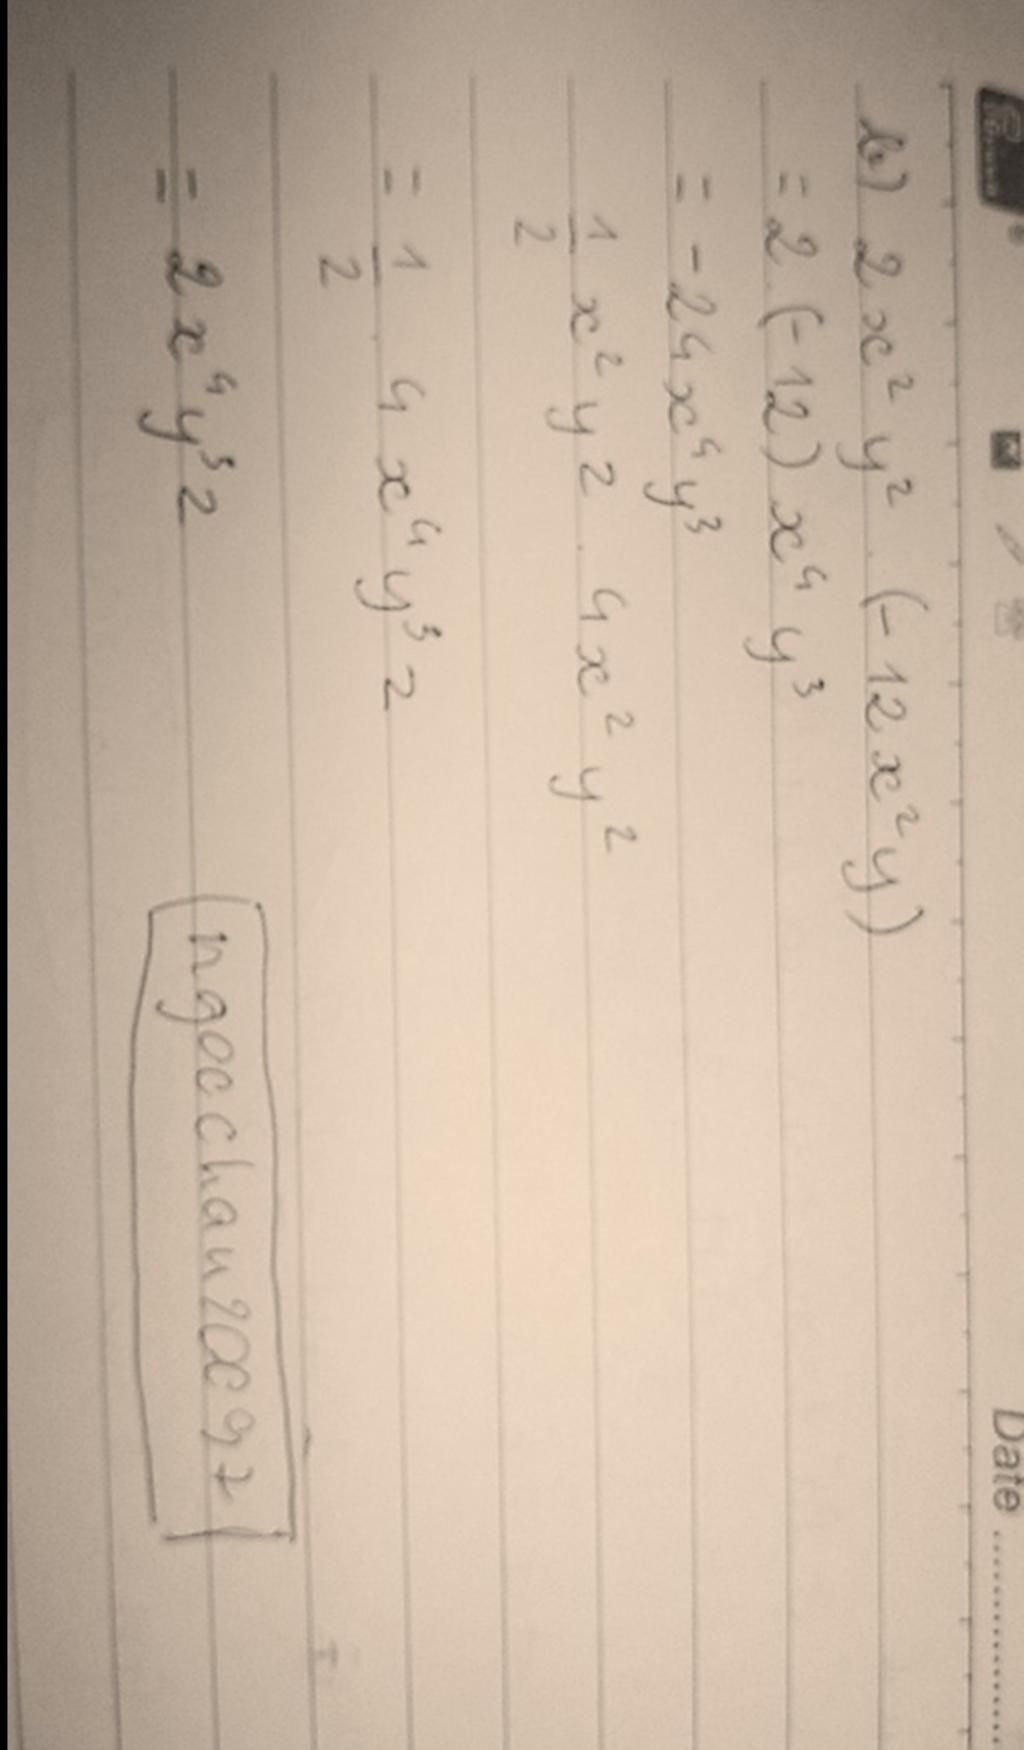 Date ..............
b) 2x²y² . (-12x²y)
= 2.(-12) x⁴y³
= -24x⁴y³
1/2 x²yz . 4x²y²
= 1/2 . 4 x⁴y³z
= 2x⁴y³z